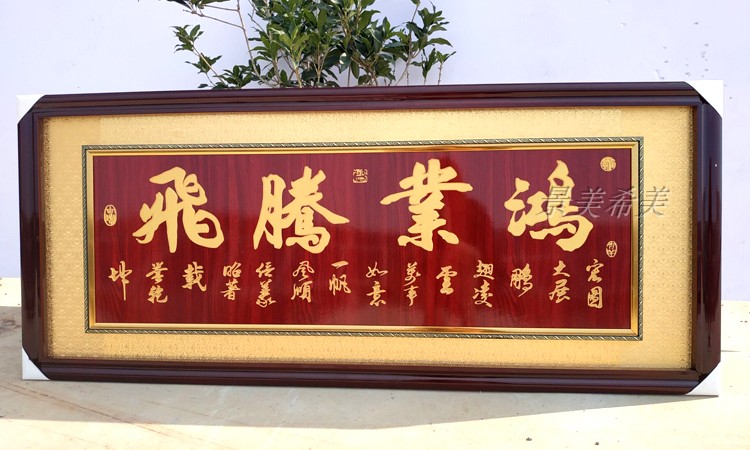 鴻業騰飛
宏圖大展鵬翅凌雲萬事如意一帆風順信義昭著載譽乾坤
景美希美